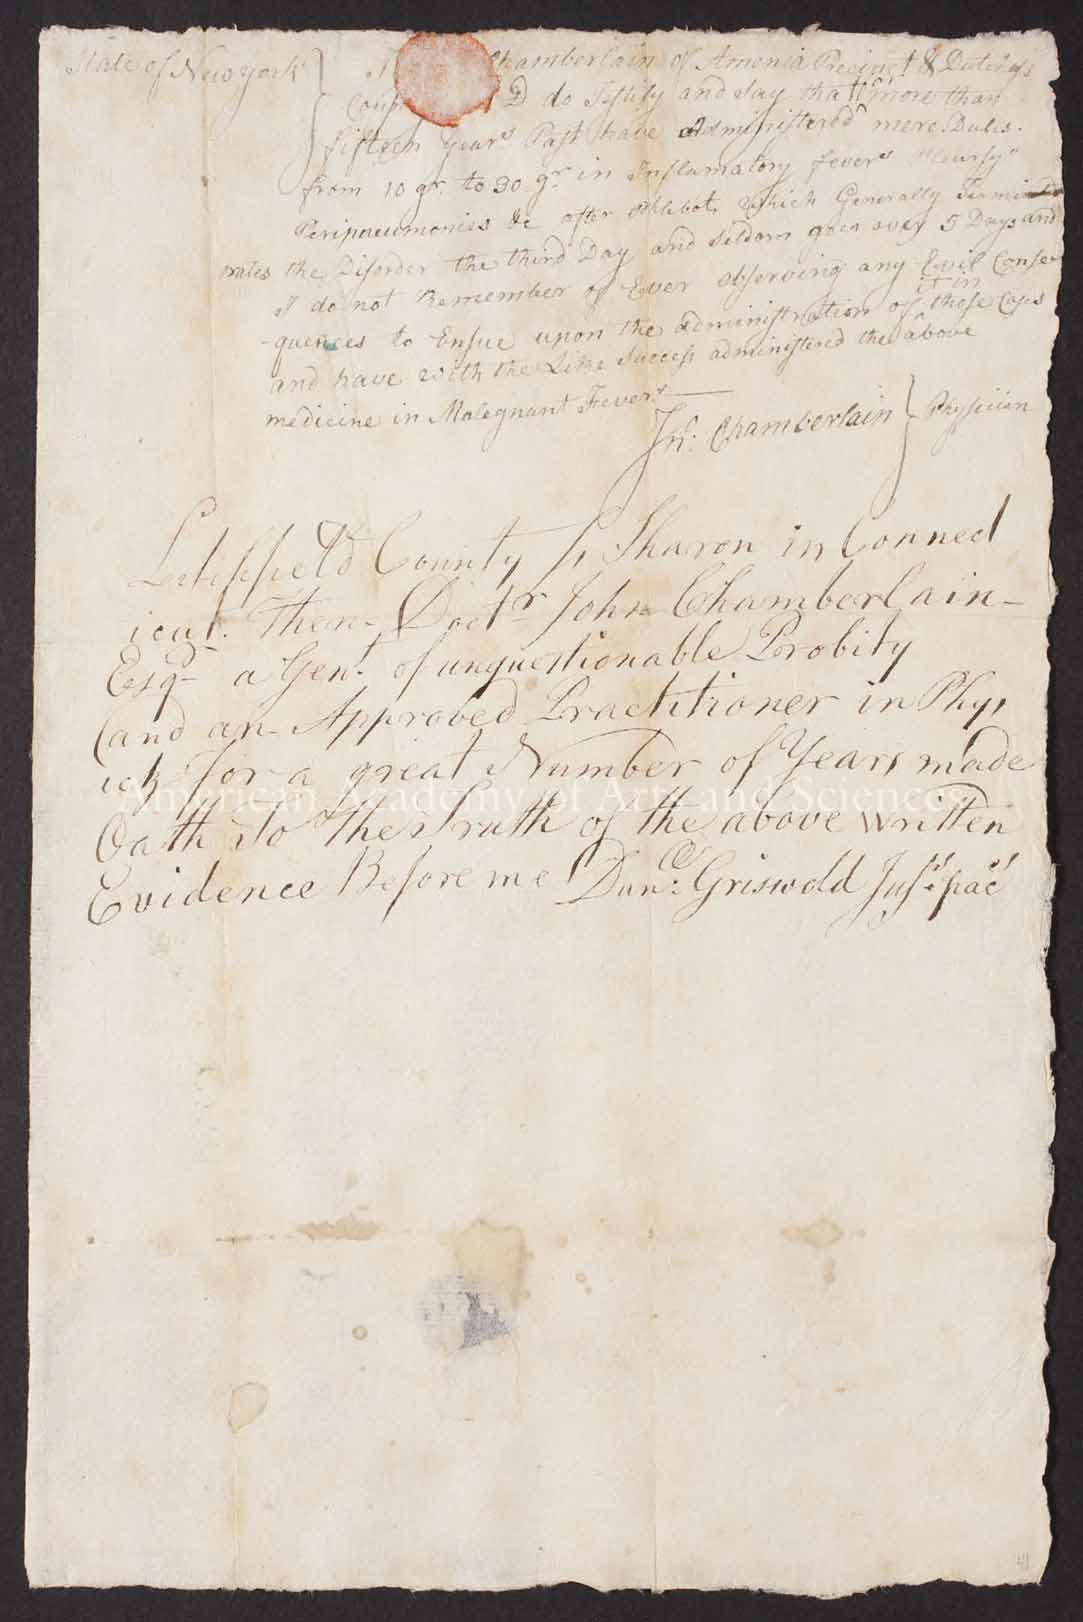 State of New York } Chamberlain of Amenia Precinct & Dutchess
Coun D do Testify and Say that for more than
fifteen Years Past have Administered merc. Dulcis.
from 10 gr. to 30 gr. in Inflamatory fevers Pleurisys
Peripneumonies &c after Phlebot. which Generally Termi
nates the Disorder the third Day and Seldom goes over 5 Days and
I do not Remember of Ever observing any Evil Conse-
-quences to Ensue upon the administration of it in those Cases
and have with the Like Success administered the above
medicine in Malegnant Fevers
Jn: Chamberlain } Physician
Litchfield County Ss Sharon in Connect
icut. Then Doctr John Chamberlain
Esqr a Gent. of unquestionable Probity
(and an Approved Practitioner in Phys
ick for a great Number of Years made
Oath to the Truth of the above written
Evidence Before me Dunn. Griswold Just. pac
American Academy of Arts and Sciences